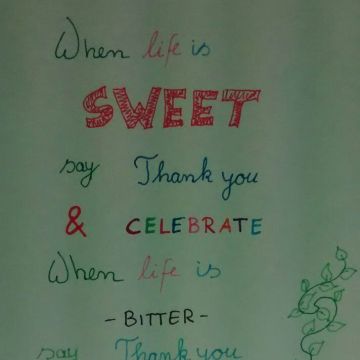 When life is
SWEET
say Thank you
& CELEBRATE
When life is
- BITTER -
say Thank you